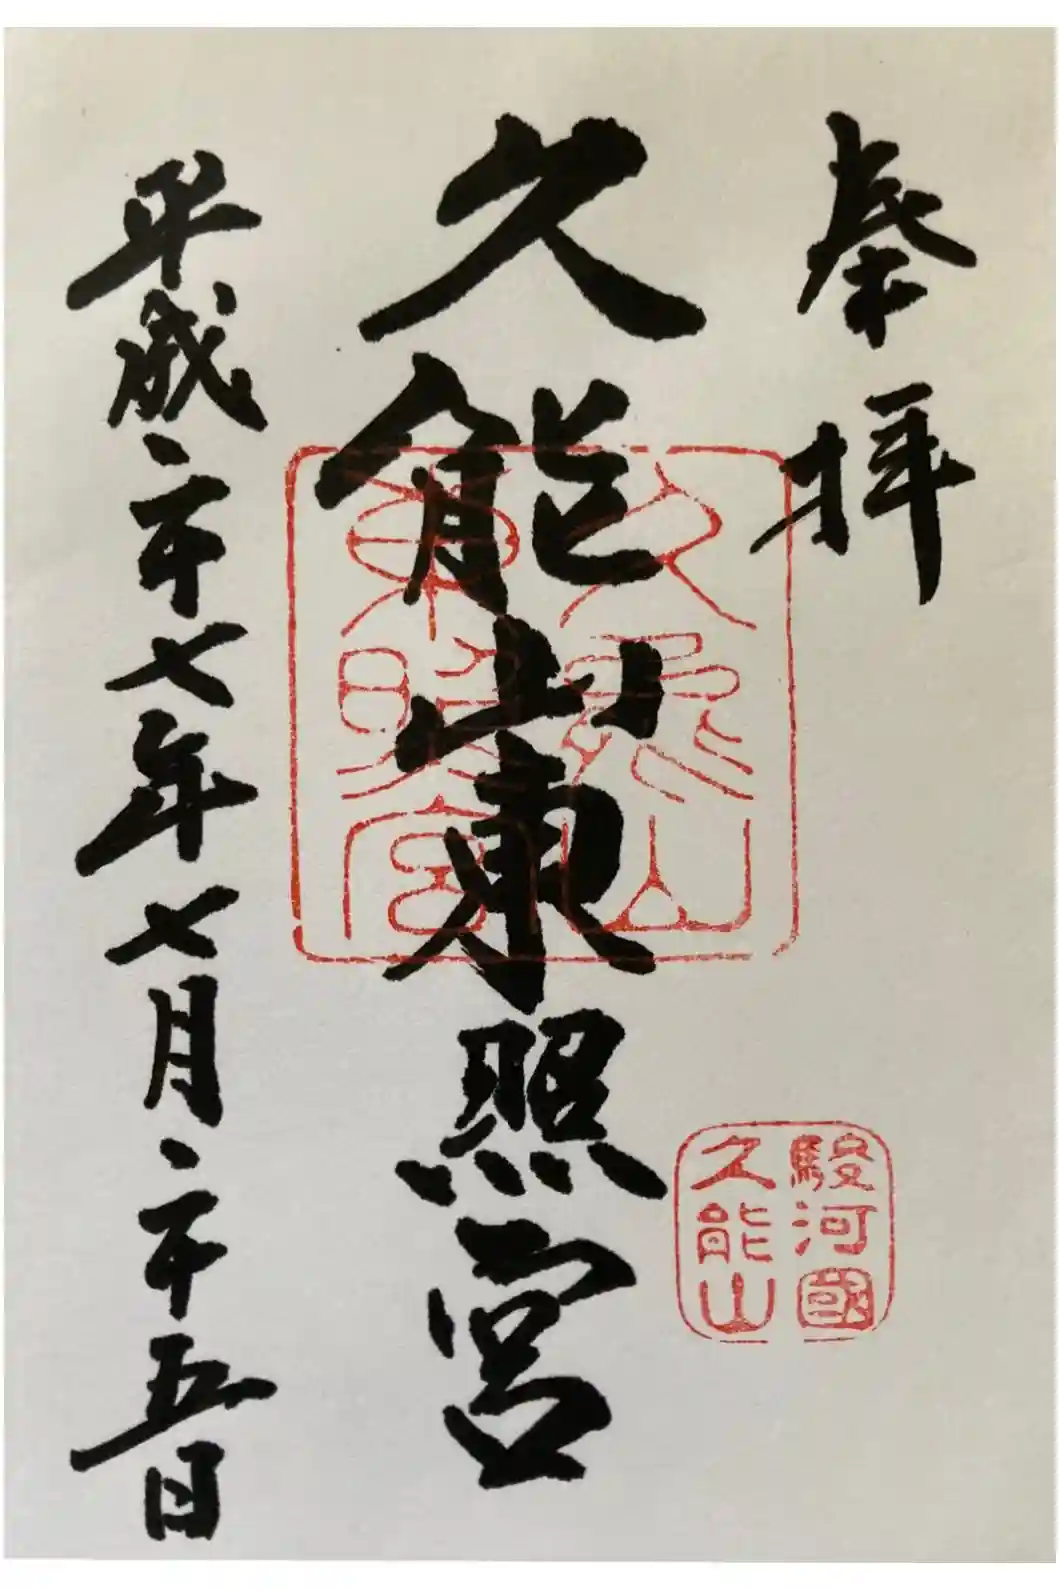 奉拝
駿河國
久能山
久能山東照宮
久能山
東照宮
平成二十七年七月二十五日